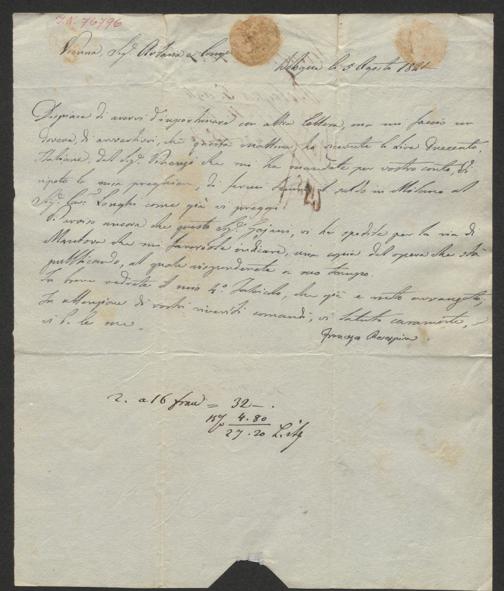 I.N. 76796
Vienna, Sigri Artaria e Comp.
Bologna li 5 Agosto 1821
Dispiace di avervi d'importunare con altra lettera, ma mi faccio un
dovere di avvertirvi, che questa mattina ho ricevute le Lire Duecento
Italiane, del Sigr che mi ha mandate per vostro conto, Vi
ripeto la mia preghiera, di farmi il saldo in Milano al
Sigr Cavr Longhi come già vi pregai.
Vi avviso ancora che questo Sigr Gajani, vi ha spedito per la via di
Mantova che mi favoriste indicare, una copia dell opera che sta
pubblicando, al quale risponderete a suo tempo.
In breve vedrete il mio 4º che già è molto avanzato,
In attenzione di vostri riveriti comandi, vi saluto caramente,
Francesco Rosaspina
2. a 16 fran = 32 — .
15 p 4.80
27.20